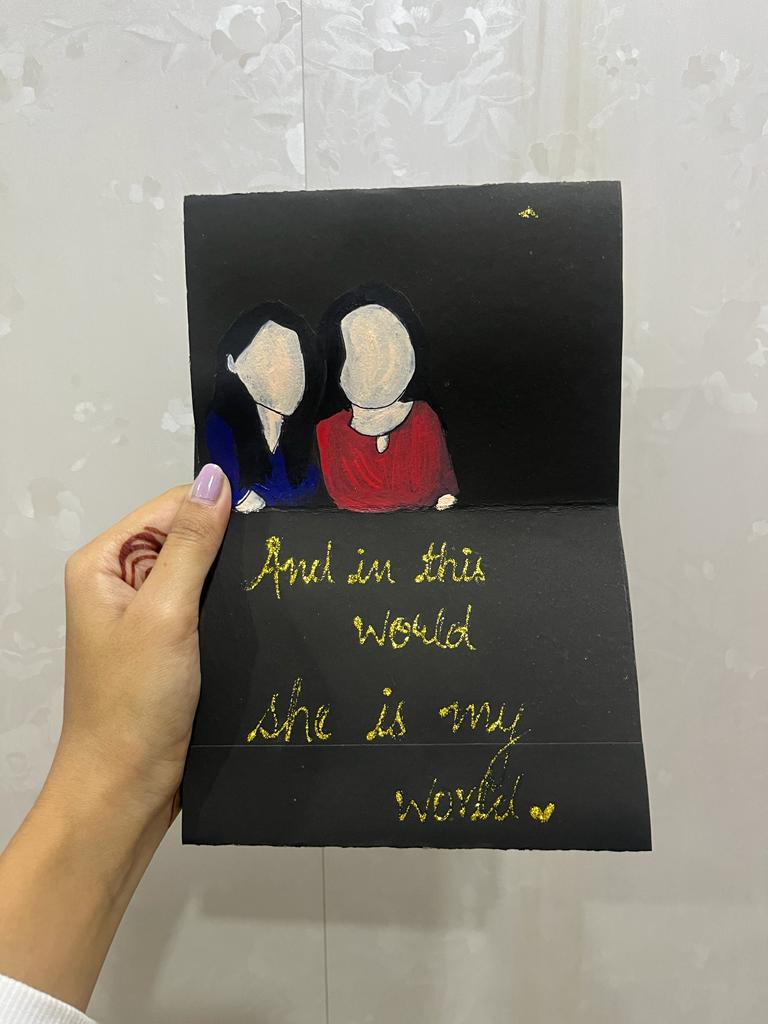 And in this
world
she is my
world